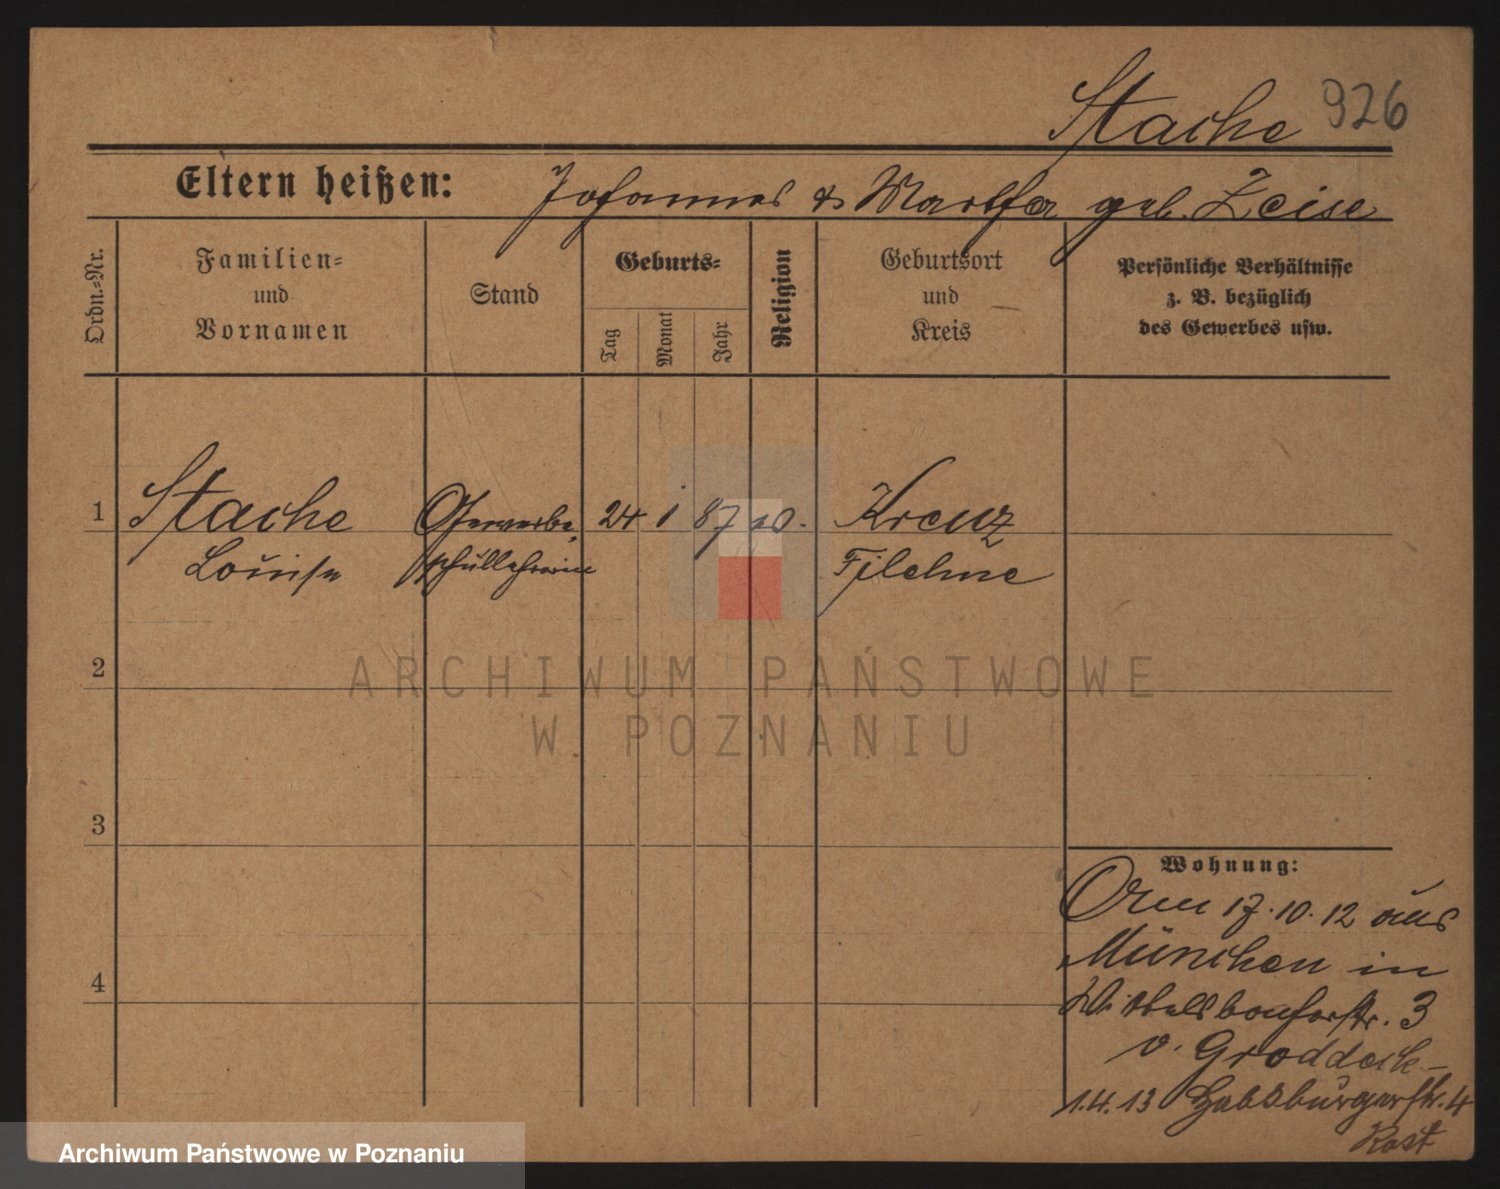 Stache 926
Eltern heißen: Johannes & Martha geb. Zeise
Ordn.-Nr.
Familien-
und
Vornamen
Stand
Geburts-
Tag
Monat
Jahr
Religion
Geburtsort
und
Kreis
Persönliche Verhältnisse
z. B. bezüglich
des Gewerbes usw.
1 Stache Gewerbe 24 i 87 Kreuz
Louise schullehrerin Filehne
2
ARCHIWUM PAŃSTWOWE
W POZNANIU
3
Wohnung:
17.10.12 aus
4 München in
Wittelsbacherstr. 3
v. Groddeck
1.4.13 Habsburgerstr. 4
Rost
Archiwum Państwowe w Poznaniu